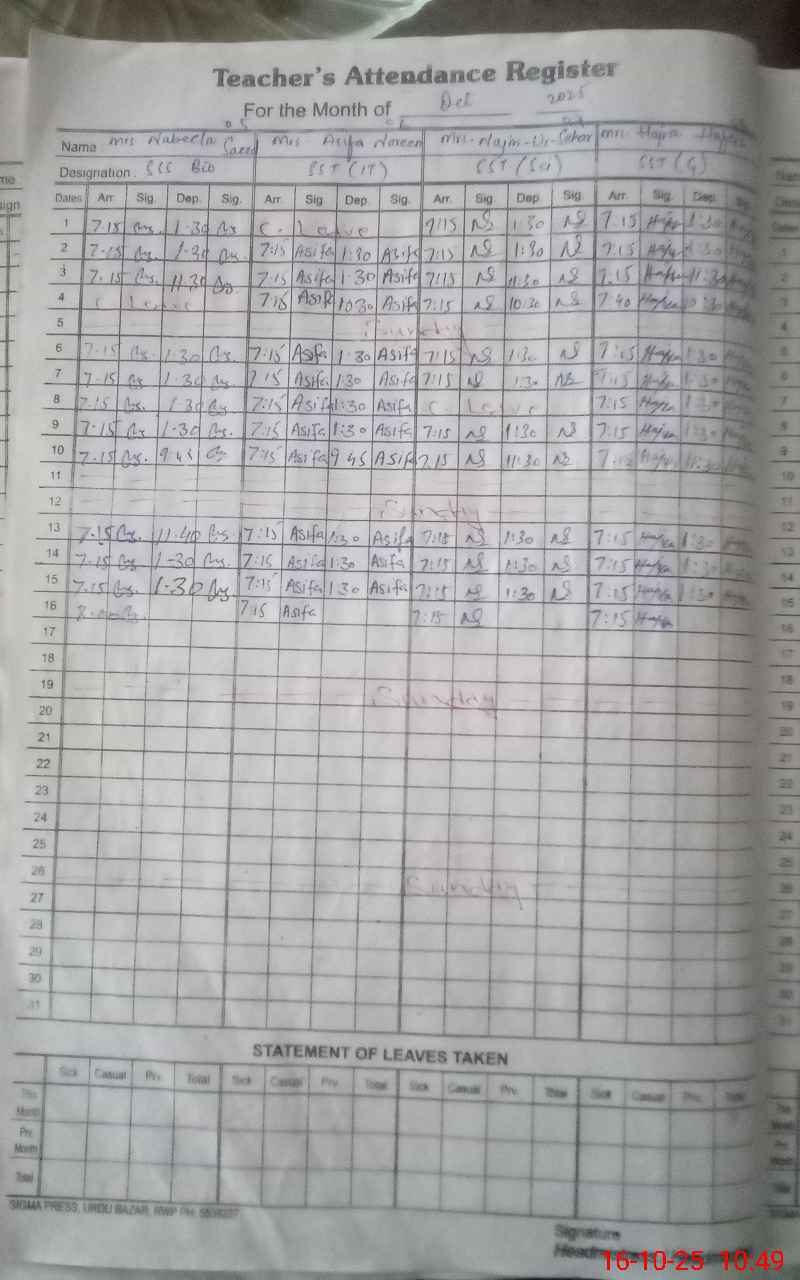 Teacher's Attendance Register
For the Month of Oct 2025
Name Mrs Nabeela Saeed Mrs Asifa Noreen Mrs. Najm-Ur-Sehar Mrs. Hajra
Designation. SSS Bio SST (IT) SST (Sci) SST (G)
Dates Arr. Sig. Dep. Sig. Arr. Sig. Dep. Sig. Arr. Sig. Dep. Sig. Arr. Sig. Dep. Sig.
1 7.15 1.30 C. Leave 7:15 NS 1:30 NS 7.15 1:30
2 7.15 1.30 7:15 Asifa 1:30 Asifa 7:15 NS 1:30 NS 7.15 1:30
3 7.15 11.30 7:15 Asifa 1:30 Asifa 7:15 NS 11:30 NS 7.15 11:30
4 C Leave 7:15 Asifa 1030 Asifa 7:15 NS 10:30 NS 7:40
5 Sunday
6 7.15 1.30 7:15 Asifa 1:30 Asifa 7:15 NS 1:30 NS 7:15 1:30
7 7.15 1.30 7:15 Asifa 1:30 Asifa 7:15 NS 1:30 NS 7:15 1:30
8 7.15 1.30 7:15 Asifa 1:30 Asifa C. Leave 7:15
9 7.15 1.30 7:15 Asifa 1:30 Asifa 7:15 NS 1:30 NS 7:15 1:30
10 7.15 9.45 7:15 Asifa 9 45 Asifa 7.15 NS 11:30 NS 11:30
11
12 Sunday
13 7.15 11.40 7:15 Asifa 1:30 Asifa 7:15 NS 1:30 NS 7:15 1:30
14 7.15 1-30 7:15 Asifa 1:30 Asifa 7:15 NS 1:30 NS 7:15 1:30
15 7.15 1.30 7:15 Asifa 1:30 Asifa 7:15 NS 1:30 NS 7:15 1:30
16 7:15 Asifa 7:15 NS 7:15
17
18
19 Sunday
20
21
22
23
24
25
26 Sunday
27
28
29
30
31
STATEMENT OF LEAVES TAKEN
Sick Casual Prv. Total Sick Casual Prv. Total Sick Casual Prv. Total Sick Casual Prv. Total
This Month
Prv. Month
Total
SIGMA PRESS, URDU BAZAR, RWP PH:
Signature
16-10-25 10:49